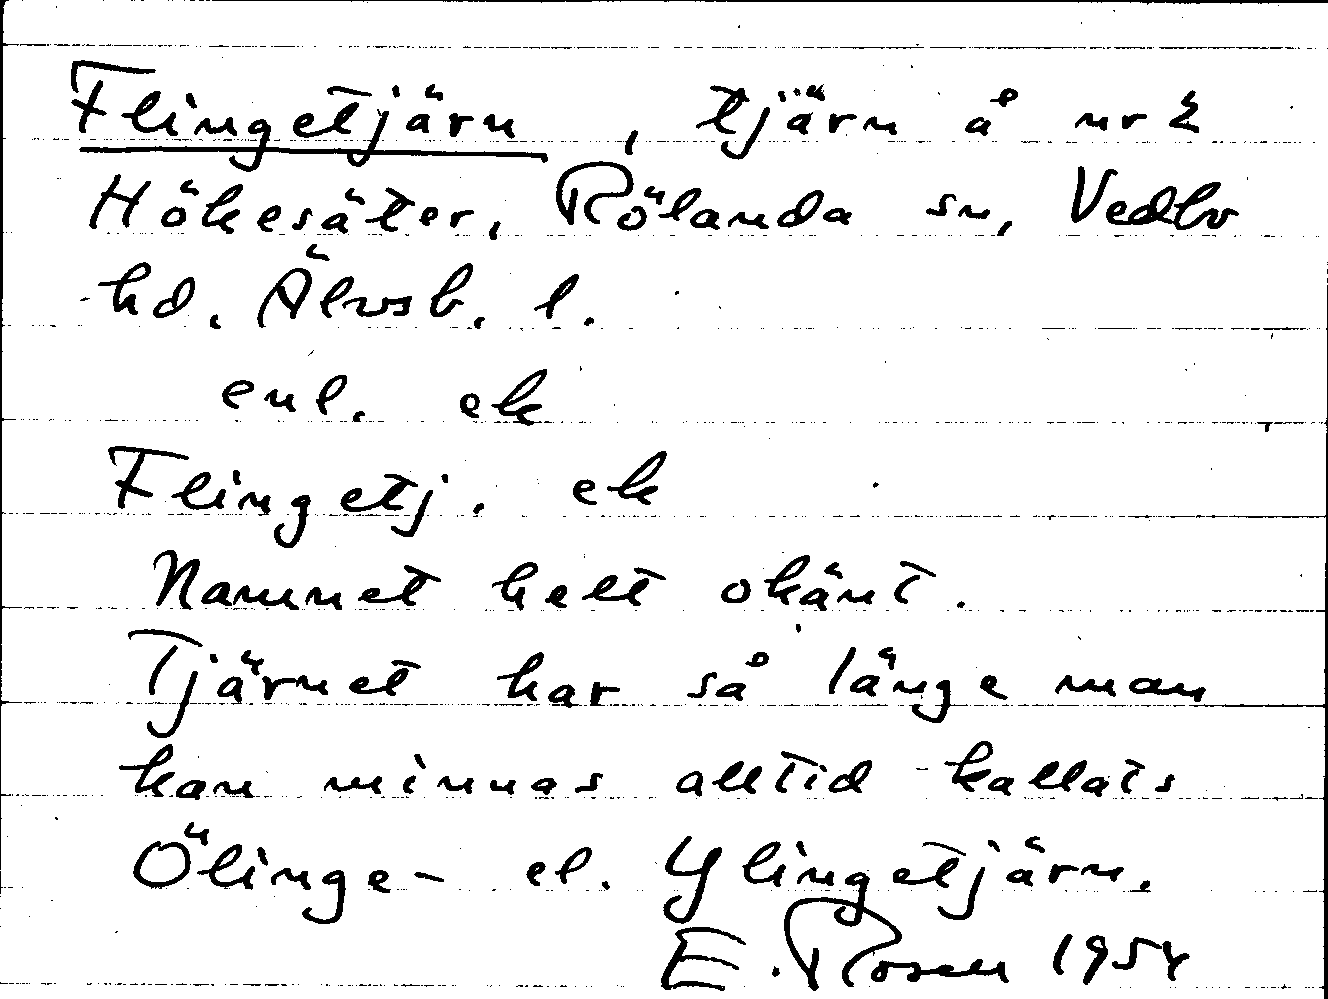 Flingetjärn, tjärn å nr 2
Hökesäter, Rölanda sn, Vedbo
hd. Älvsb. l.
enl. ek
Flingetj. ek
Namnet helt okänt.
Tjärnet har så länge man
kan minnas alltid kallats
Ölinge- el. Ylingetjärn.
E. Rosen 1954